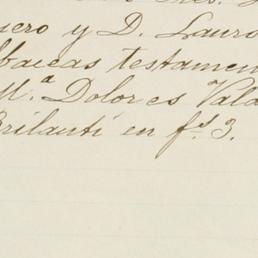 uero y D. Lauro
lbaceas testamen
M.ª Dolores Vala
Brilanti en f.s 3.